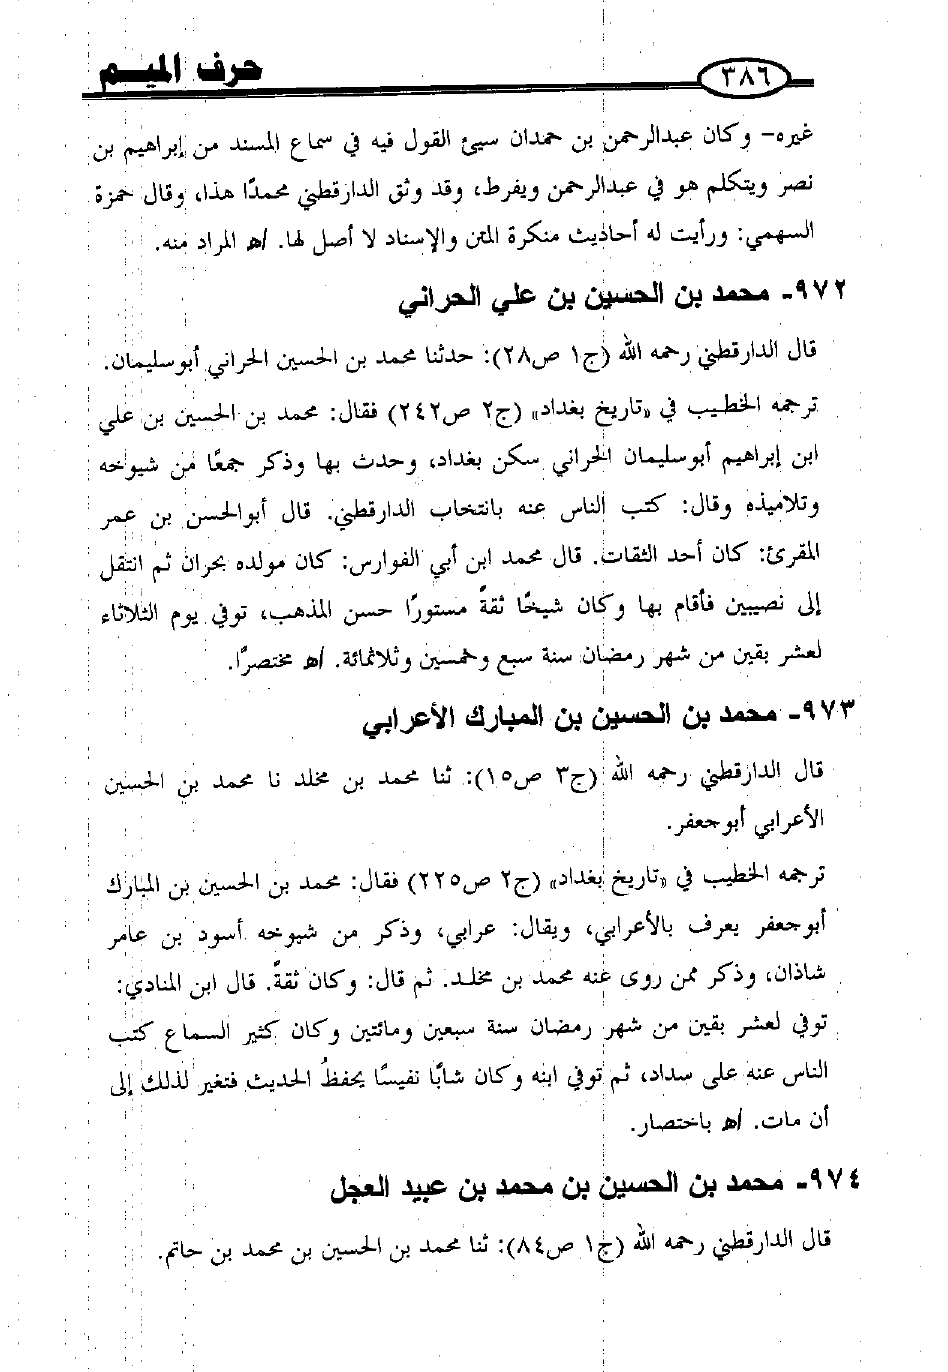 حرف الميم ٣٨٦
غيره- وكان عبدالرحمن بن حمدان سيئ القول فيه في سماع المسند من إبراهيم بن
نصر ويتكلم هو في عبدالرحمن ويفرط، وقد وثق الدارقطني محمدًا هذا، وقال حمزة
السهمي: ورأيت له أحاديث منكرة المتن والإسناد لا أصل لها. اهـ المراد منه.
٩٧٢- محمد بن الحسين بن علي الحراني
قال الدارقطني رحمه الله (ج١ ص٢٨): حدثنا محمد بن الحسين الحراني أبوسليمان.
ترجمه الخطيب في «تاريخ بغداد» (ج٢ ص٢٤٢) فقال: محمد بن الحسين بن علي
ابن إبراهيم أبوسليمان الحراني سكن بغداد، وحدث بها وذكر جمعًا من شيوخه
وتلاميذه وقال: كتب الناس عنه بانتخاب الدارقطني. قال أبوالحسن بن عمر
المقرئ: كان أحد الثقات. قال محمد ابن أبي الفوارس: كان مولده بحران ثم انتقل
إلى نصيبين فأقام بها وكان شيخًا ثقةً مستورًا حسن المذهب، توفي يوم الثلاثاء
لعشر بقين من شهر رمضان سنة سبع وخمسين وثلاثمائة. اهـ مختصرًا.
٩٧٣- محمد بن الحسين بن المبارك الأعرابي
قال الدارقطني رحمه الله (ج٣ ص١٥): ثنا محمد بن مخلد نا محمد بن الحسين
الأعرابي أبوجعفر.
ترجمه الخطيب في «تاريخ بغداد» (ج٢ ص٢٢٥) فقال: محمد بن الحسين بن المبارك
أبوجعفر يعرف بالأعرابي، ويقال: عرابي، وذكر من شيوخه أسود بن عامر
شاذان، وذكر ممن روى عنه محمد بن مخلد. ثم قال: وكان ثقةً. قال ابن المنادي:
توفي لعشر بقين من شهر رمضان سنة سبعين ومائتين وكان كثير السماع كتب
الناس عنه على سداد، ثم توفي ابنه وكان شابًا نفيسًا يحفظُ الحديث فتغير لذلك إلى
أن مات. اهـ باختصار.
٩٧٤- محمد بن الحسين بن محمد بن عبيد العجل
قال الدارقطني رحمه الله (ج١ ص٨٤): ثنا محمد بن الحسين بن محمد بن حاتم.